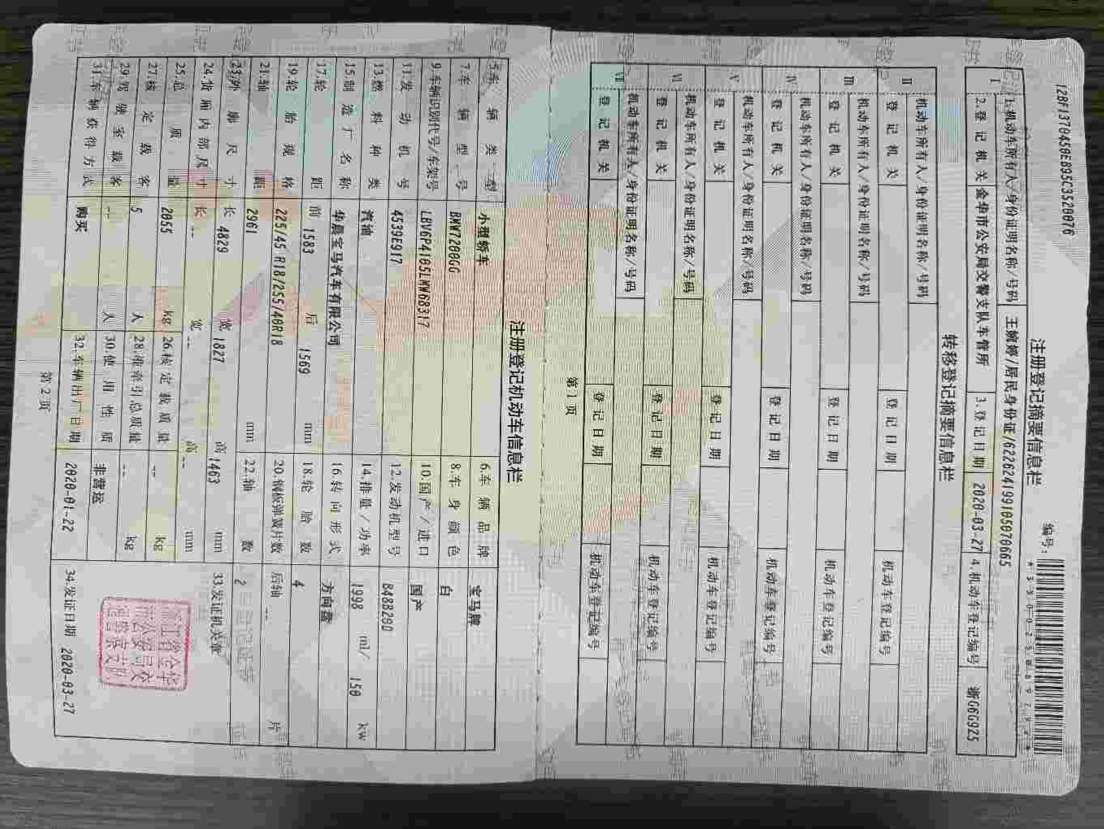 12BF1370459E895C3520076
注册登记摘要信息栏
编号:
I 1.机动车所有人/身份证明名称/号码 王婉婷/居民身份证/622624199105070665
2.登记机关 金华市公安局交警支队车管所 3.登记日期 2020-03-27 4.机动车登记编号 浙G6G925
转移登记摘要信息栏
II 机动车所有人/身份证明名称/号码
登记机关 登记日期 机动车登记编号
III 机动车所有人/身份证明名称/号码
登记机关 登记日期 机动车登记编号
IV 机动车所有人/身份证明名称/号码
登记机关 登记日期 机动车登记编号
V 机动车所有人/身份证明名称/号码
登记机关 登记日期 机动车登记编号
VI 机动车所有人/身份证明名称/号码
登记机关 登记日期 机动车登记编号
VII 机动车所有人/身份证明名称/号码
登记机关 登记日期 机动车登记编号
第1页
注册登记机动车信息栏
5.车辆类型 小型轿车 6.车辆品牌 宝马牌
7.车辆型号 BMW7200GG 8.车身颜色 白
9.车辆识别代号/车架号 LBV6P4105LMW60317 10.国产/进口 国产
11.发动机号 4539E917 12.发动机型号 B48B20D
13.燃料种类 汽油 14.排量/功率 1998 ml/ 150 kw
15.制造厂名称 华晨宝马汽车有限公司 16.转向形式 方向盘
17.轮距 前 1583 后 1569 mm 18.轮胎数 4
19.轮胎规格 225/45 R18/255/40R18 20.钢板弹簧片数 后轴 -- 片
21.轴距 2961 mm 22.轴数 2
23.外廓尺寸 长 4829 宽 1827 高 1463 mm 33.发证机关章
24.货厢内部尺寸 长 -- 宽 -- 高 -- mm
25.总质量 2055 kg 26.核定载质量 -- kg
27.核定载客 5 人 28.准牵引总质量 -- kg
29.驾驶室载客 -- 人 30.使用性质 非营运
31.车辆获得方式 购买 32.车辆出厂日期 2020-01-22 34.发证日期 2020-03-27
浙江省金华
市公安局交
通警察支队
第2页